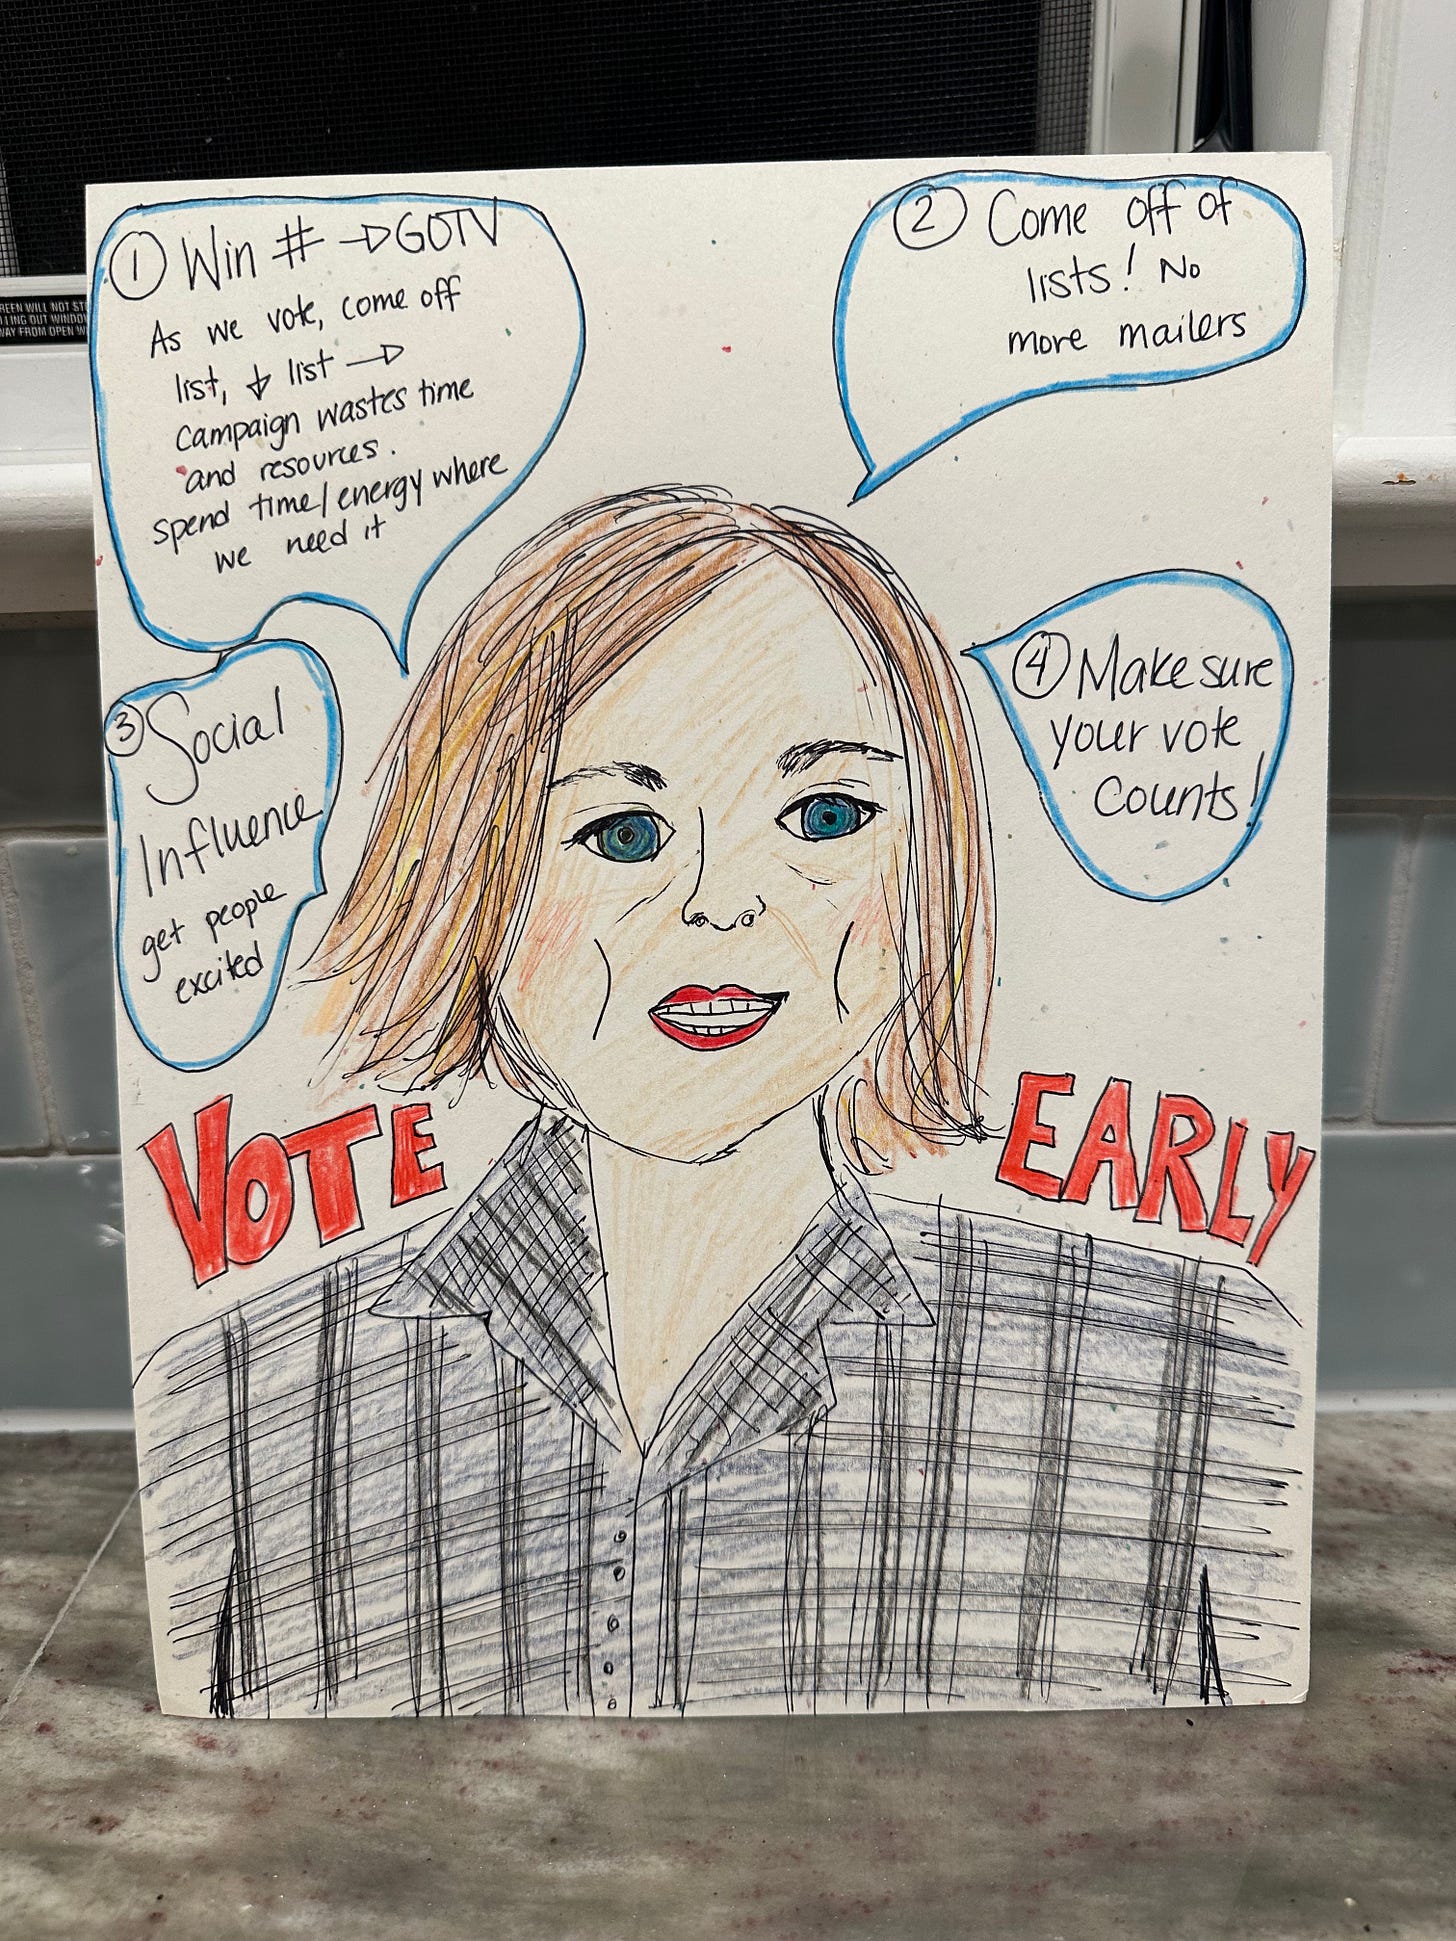 ① Win # → GOTV
As we vote, come off
list, ↓ list →
Campaign wastes time
and resources.
spend time/energy where
we need it
② Come off of
lists! No
more mailers
③ Social
Influence
get people
excited
④ Make sure
your vote
Counts!
VOTE
EARLY
REEN WILL NOT ST
LLING OUT WINDOW
WAY FROM OPEN W